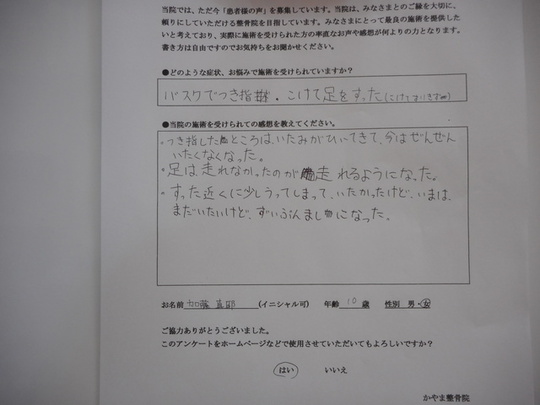 当院では、ただ今「患者様の声」を募集しています。当院は、みなさまとのご縁を大切に、
頼りにしていただける整骨院を目指しています。みなさまにとって最良の施術を提供した
いと考えており、実際に施術を受けられた方の率直なお声や感想が何よりの力となります。
書き方は自由ですのでお気持ちをお聞かせください。
●どのような症状、お悩みで施術を受けられていますか？
バスケでつき指。こけて足をすった
●当院の施術を受けられての感想を教えてください。
・つき指したところは、いたみがひいてきて、今はぜんぜん
いたくなくなった。
・足は走れなかったのが走れるようになった。
・すった近くに少しうってしまって、いたかったけど、いまは、
まだいたいけど、ずいぶんましになった。
お名前 加藤 (イニシャル可) 年齢 10 歳 性別 男・女
ご協力ありがとうございました。
このアンケートをホームページなどで使用させていただいてもよろしいですか？
はい いいえ
かやま整骨院